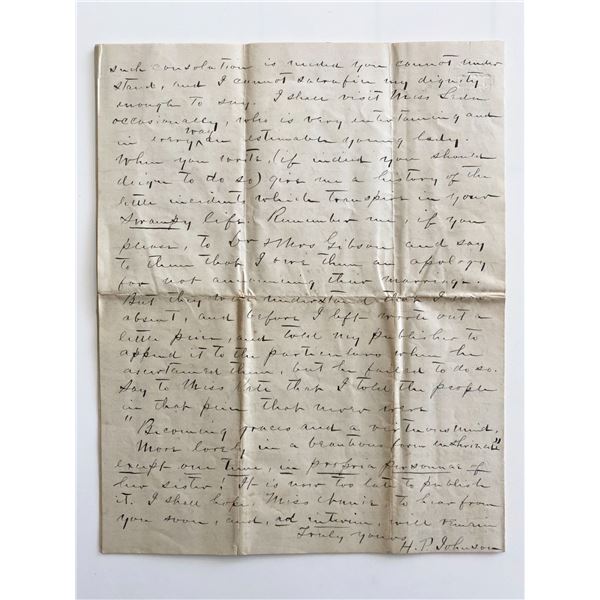 such consolation is needed you cannot under
stand, and I cannot sacrafise my dignity
enough to say. I shall visit Miss
occasionally, who is very entertaining and
in every way an estimable young lady.
When you write, (if indeed you should
deign to do so) give me a history of the
little incidents which transpire in your
Swampy life. Remember me, if you
please, to Dr & Mrs Gibson and say
to them that I owe them an apology
for not announcing their marriage.
But they will understand that I was
absent, and before I left wrote out a
little piece, and told my publisher to
append it to the particulars when he
ascertained them, but he failed to do so.
Say to Miss Kate that I told the people
in that piece that never were
"Becoming graces and a virtuous mind,
More lovely in a beauteous form enshrined"
except one time, in propria personnae of
her sister! It is now too late to publish
it. I shall hope, Miss Annie to hear from
you soon, and, ad interim, will remain
Truly yours
H. P. Johnson